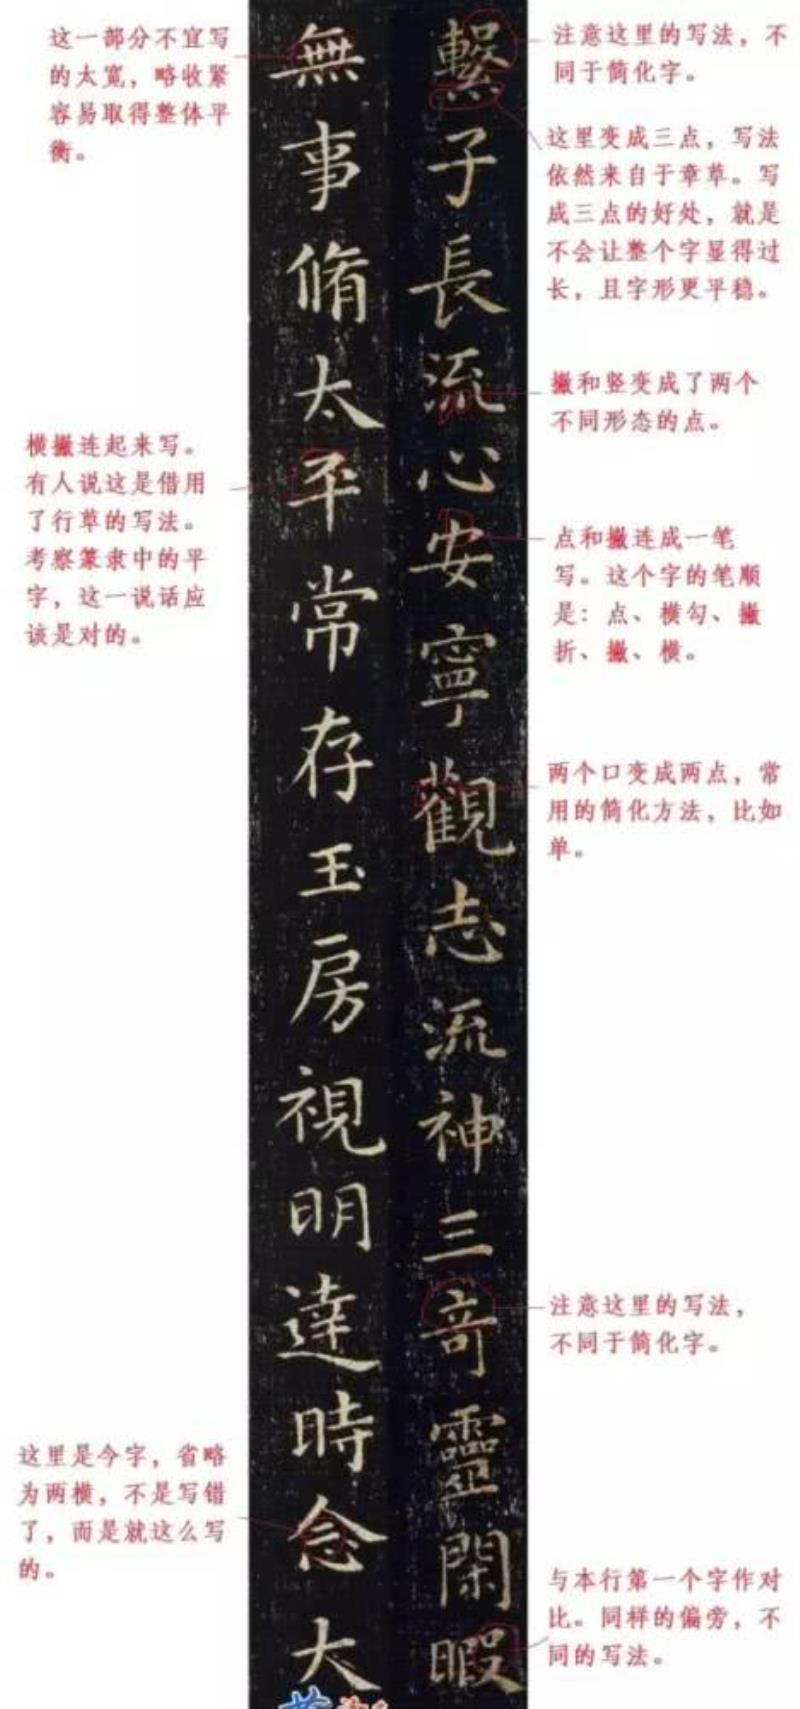 繫子長流心安寧觀志流神三奇靈閑暇
無事脩太平常存玉房視明達時念大
注意这里的写法，不
同于简化字。
这里变成三点，写法
依然来自于章草。写
成三点的好处，就是
不会让整个字显得过
长，且字形更平稳。
撇和竖变成了两个
不同形态的点。
点和撇连成一笔
写。这个字的笔顺
是：点、横勾、撇
折、撇、横。
两个口变成两点，常
用的简化方法，比如
单。
注意这里的写法，
不同于简化字。
与本行第一个字作对
比。同样的偏旁，不
同的写法。
这一部分不宜写
的太宽，略收紧
容易取得整体平
衡。
横撇连起来写。
有人说这是借用
了行草的写法。
考察篆隶中的平
字，这一说话应
该是对的。
这里是今字，省略
为两横，不是写错
了，而是就这么写
的。